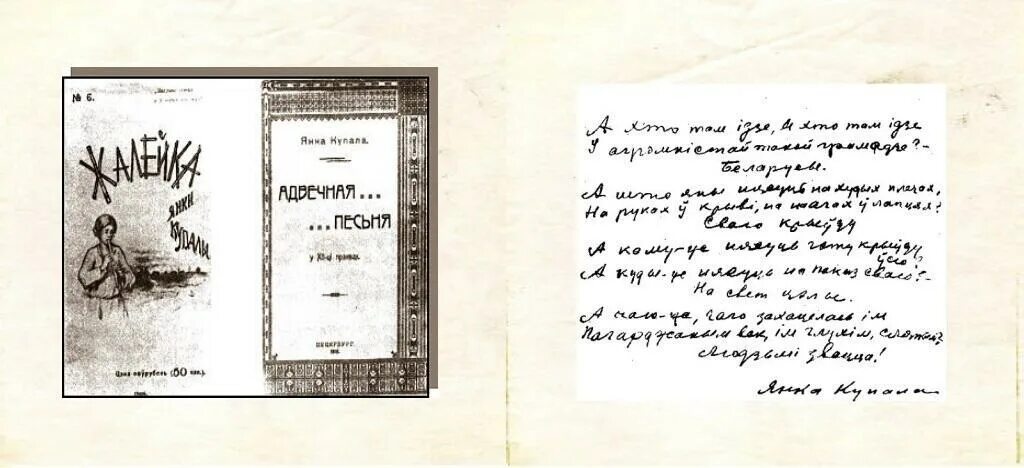 № 6.
ЖАЛЕЙКА
ЯНКИ
КУПАЛИ
Цена паўрубель (50 кап.)
Янка Купала.
АДВЕЧНАЯ...
...ПЕСЬНЯ
у XII-ці праявах.
ПЕЦЕРБУРГ
1910.
А хто там ідзе, А хто там ідзе
У агромністай такой грамадзе? –
Беларусы.
А што яны нясуць на худых плячах,
На руках у крыві, на нагах у лапцях?
Сваю крыўду
А каму-це нясуць гэту крыўду
ўсю?
А куды-це нясуць на паказ сваю? –
На свет цэлы.
А чаго-це, чаго захацелась ім
Пагарджаным век, ім глухім, сляпым?
Людзьмі звацца!
Янка Купала